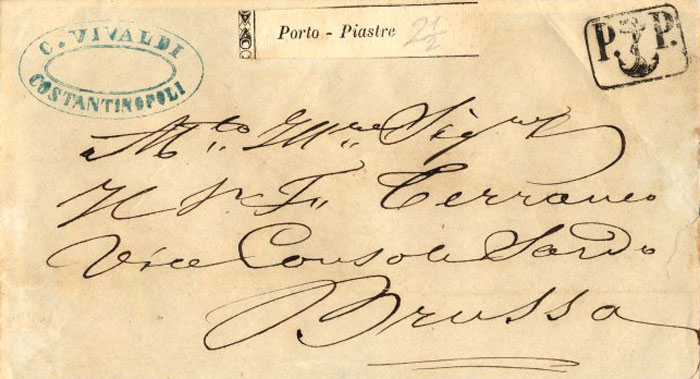 C. VIVALDI
COSTANTINOPOLI
Porto - Piastre 2 1/2
P. P.
Mto Mre Sigre
Il Sr F. Terraneo
Vice Console Sardo
Brussa